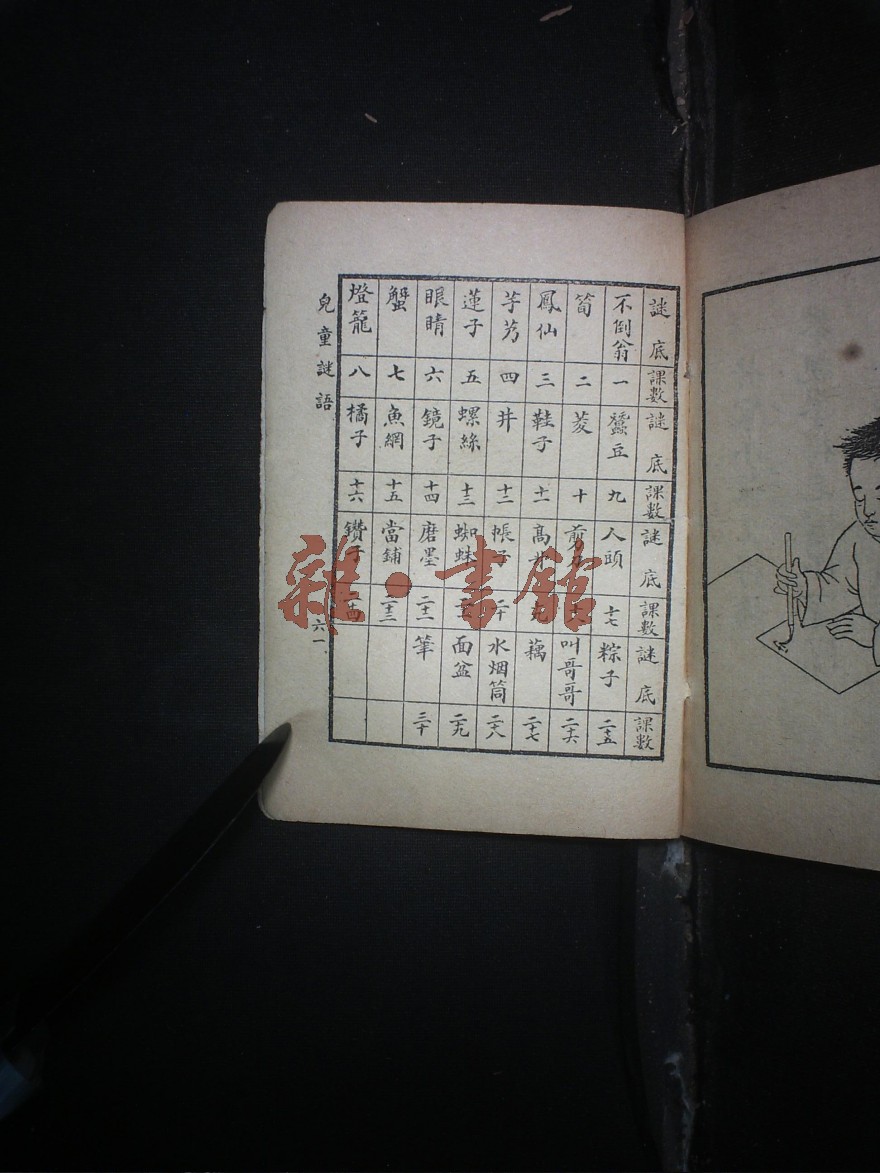 謎底 課數 謎底 課數 謎底 課數 謎底 課數
不倒翁 一 蠶豆 九 人頭 十七 粽子 二十五
筍 二 菱 十 十八 叫哥哥 二十六
鳳仙 三 鞋子 十一 十九 藕 二十七
芋艿 四 井 十二 帳子 二十 水烟筒 二十八
蓮子 五 螺絲 十三 蜘蛛 二十一 面盆 二十九
眼睛 六 鏡子 十四 磨墨 二十二 筆 三十
蟹 七 魚網 十五 當鋪 二十三
燈籠 八 橘子 十六 鑽子 二十四
兒童謎語 六一
雜·書館